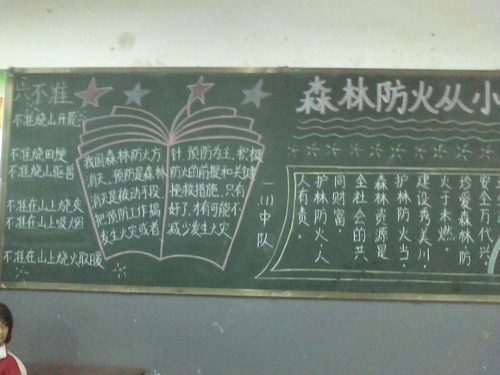 六不准
不准烧山开荒
不准烧田埂
不准烧山驱兽
不准在山上烧炙
不准在山上吸烟
不准在山上烧火取暖
我国森林防火方
针，预防为主、积极
消灭，预防是森林
防火的前提和关键
消灭是被动手段
挽救措施，只有
把预防工作搞
好了，才有可能不
发生火灾或者
减少发生火灾
一(1)中队
森林防火从小
安全万代兴
珍爱森林防
火于未燃。
建设秀美川，
护林防火当
森林资源是
全社会的共
同财富
护林防火，人
人有责。